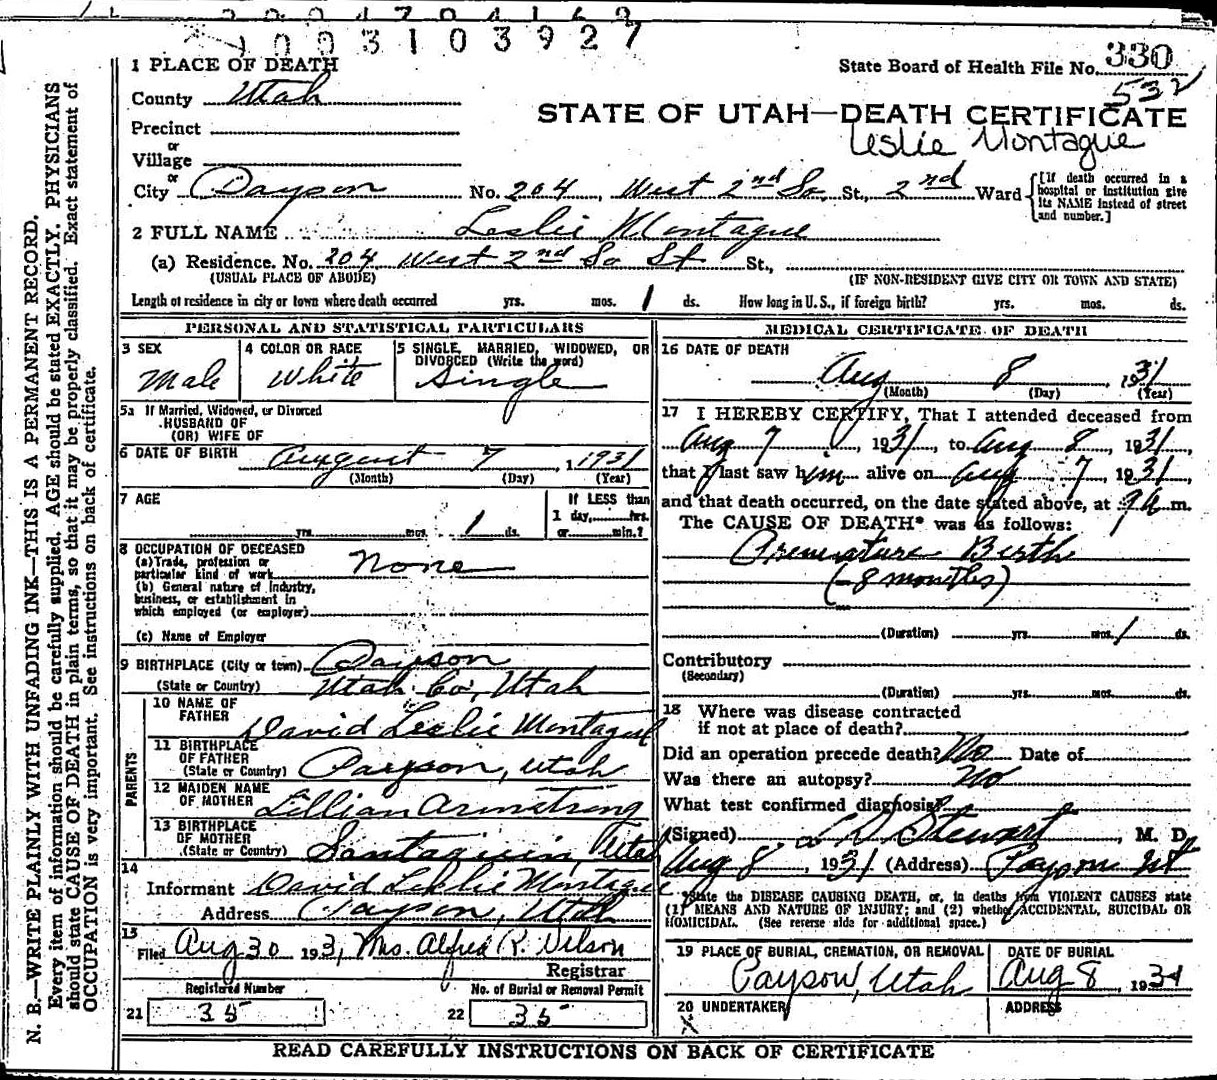 1003103927
1 PLACE OF DEATH
State Board of Health File No. 330
532
County Utah
STATE OF UTAH—DEATH CERTIFICATE
Leslie Montague
Precinct
or
Village
or
City Payson No. 204, West 2nd So. St., 2nd Ward
[If death occurred in a
hospital or institution give
its NAME instead of street
and number.]
2 FULL NAME Leslie Montague
(a) Residence. No. 204 West 2nd So St St.,
(USUAL PLACE OF ABODE) (IF NON-RESIDENT GIVE CITY OR TOWN AND STATE)
Length of residence in city or town where death occurred yrs. mos. 1 ds. How long in U. S., if foreign birth? yrs. mos. ds.
PERSONAL AND STATISTICAL PARTICULARS
3 SEX
Male
4 COLOR OR RACE
White
5 SINGLE, MARRIED, WIDOWED, OR
DIVORCED (Write the word)
Single
5a If Married, Widowed, or Divorced
HUSBAND OF
(OR) WIFE OF
6 DATE OF BIRTH August 7, 1 1931
(Month) (Day) (Year)
7 AGE
yrs. mos. 1 ds.
If LESS than
1 day, hrs.
or min.?
8 OCCUPATION OF DECEASED
(a) Trade, profession or
particular kind of work None
(b) General nature of Industry,
business, or establishment in
which employed (or employer)
(c) Name of Employer
9 BIRTHPLACE (City or town) Payson
(State or Country) Utah Co, Utah
PARENTS
10 NAME OF
FATHER David Leslie Montague
11 BIRTHPLACE
OF FATHER
(State or Country) Payson, Utah
12 MAIDEN NAME
OF MOTHER Lillian Armstrong
13 BIRTHPLACE
OF MOTHER
(State or Country) Santaquin, Utah
14
Informant David Leslie Montague
Address Payson, Utah
15
Filed Aug 30 1931, Mrs. Alfred R. Wilson
Registrar
Registered Number No. of Burial or Removal Permit
21 35 22 35
MEDICAL CERTIFICATE OF DEATH
16 DATE OF DEATH
Aug 8, 1931
(Month) (Day) (Year)
17 I HEREBY CERTIFY, That I attended deceased from
Aug 7, 1931, to Aug 8, 1931,
that I last saw him alive on Aug 7, 1931,
and that death occurred, on the date stated above, at 9 a m.
The CAUSE OF DEATH* was as follows:
Premature Birth
(-8 months)
(Duration) yrs. mos. 1 ds.
Contributory
(Secondary)
(Duration) yrs. mos. ds.
18 Where was disease contracted
if not at place of death?
Did an operation precede death? No Date of
Was there an autopsy? No
What test confirmed diagnosis?
(Signed) L D Stewart, M. D.
Aug 8, 1931 (Address) Payson Ut
*State the DISEASE CAUSING DEATH, or, in deaths from VIOLENT CAUSES state
(1) MEANS AND NATURE OF INJURY; and (2) whether ACCIDENTAL, SUICIDAL OR
HOMICIDAL. (See reverse side for additional space.)
19 PLACE OF BURIAL, CREMATION, OR REMOVAL
Payson, Utah
DATE OF BURIAL
Aug 8 1931
20 UNDERTAKER
X
ADDRESS
READ CAREFULLY INSTRUCTIONS ON BACK OF CERTIFICATE
N. B.—WRITE PLAINLY WITH UNFADING INK—THIS IS A PERMANENT RECORD.
Every item of information should be carefully supplied. AGE should be stated EXACTLY. PHYSICIANS
should state CAUSE OF DEATH in plain terms, so that it may be properly classified. Exact statement of
OCCUPATION is very important. See instructions on back of certificate.